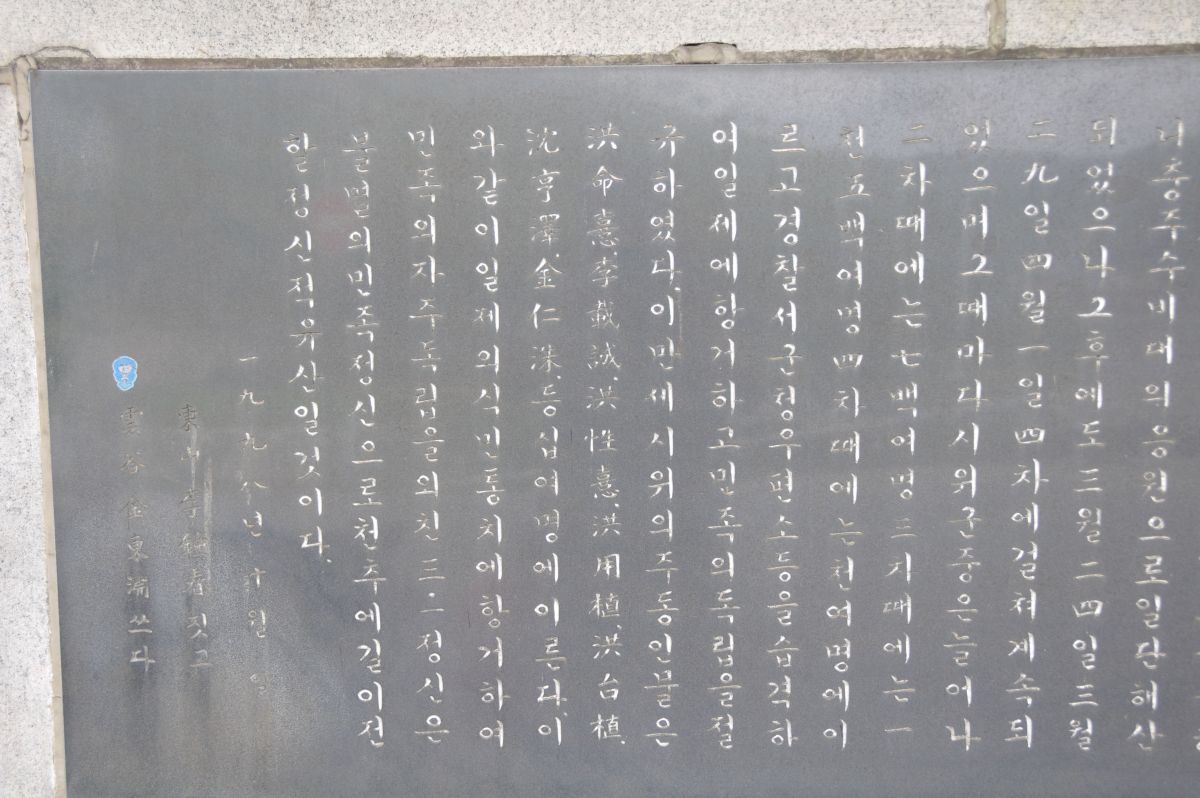 니충주수비대의응원으로일단해산
되었으나그후에도三월二四일三월
二九일四월一일四차에걸쳐계속되
있으며그때마다시위군중은늘어나
二차때에는七백여명三차때에는一
천五백여명四차때에는천여명에이
르고경찰서군청우편소등을습격하
여일제에항거하고민족의독립을절
규하였다.이만세시위의주동인물은
洪命憙.李載誠.洪性憙.洪用植.洪台植.
沈亨澤.金仁洙등십여명에이른다.이
와같이일제의식민통치에항거하여
민족의자주독립을외친三·一정신은
불멸의민족정신으로천추에길이전
할정신적유산일것이다.
一九九八년 十월 일
짓고
雲谷 金東淵 쓰다